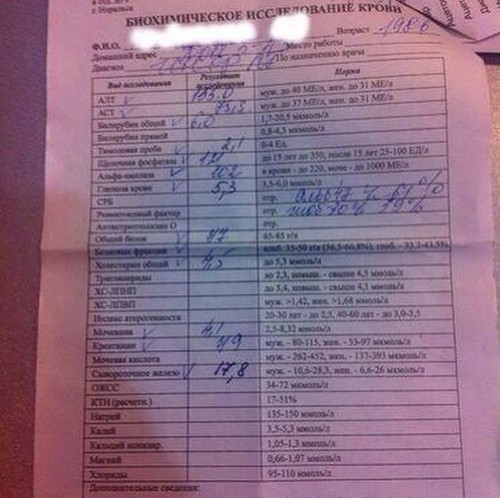 г. Норильск
БИОХИМИЧЕСКОЕ ИССЛЕДОВАНИЕ КРОВИ
Ф.И.О. Возраст 1986
Домашний адрес Место работы
Диагноз По назначению врача
Вид исследования Результат исследования Норма
АЛТ 133,0 муж. до 40 МЕ/л, жен. до 31 МЕ/л
АСТ 73,3 муж. до 37 МЕ/л, жен. до 31 МЕ/л
Билирубин общий 6,0 1,7-20,5 мкмоль/л
Билирубин прямой 0,8-4,3 мкмоль/л
Тимоловая проба 2,1 0-4 ЕД
Щелочная фосфатаза 121 до 15 лет до 350, после 15 лет 25-100 ЕД/л
Альфа-амилаза 102 в крови - до 220, моче - до 1000 МЕ/л
Глюкоза крови 5,3 3,5-6,0 ммоль/л
СРБ отр. 61%
Ревматоидный фактор отр. 39%
Антистрептолизин О отр.
Общий белок 77 65-85 г/л
Белковые фракции альб. 35-50 г/л (56,5-66,8%), глоб. - 33,2-43,5%
Холестерин общий 4,5 до 5,3 ммоль/л
Триглицериды до 2,3, повыш. - свыше 4,5 ммоль/л
ХС-ЛПНП до 3,4, повыш. - свыше 4,1 ммоль/л
ХС-ЛПВП муж. >1,42, жен. >1,68 ммоль/л
Индекс атерогенности 20-30 лет - до 2,5, 40-60 лет - до 3,0-3,5
Мочевина 4,1 2,5-8,32 ммоль/л
Креатинин 79 муж. - 80-115, жен. - 53-97 мкмоль/л
Мочевая кислота муж. - 262-452, жен. - 137-393 мкмоль/л
Сывороточное железо 17,8 муж. - 10,6-28,3, жен. - 6,6-26 мкмоль/л
ОЖСС 34-72 мкмоль/л
КТН (расчетн.) 17-51%
Натрий 135-150 ммоль/л
Калий 3,5-5,3 ммоль/л
Кальций ионизир. 1,05-1,3 ммоль/л
Магний 0,66-1,07 ммоль/л
Хлориды 95-110 ммоль/л
Дополнительные сведения: